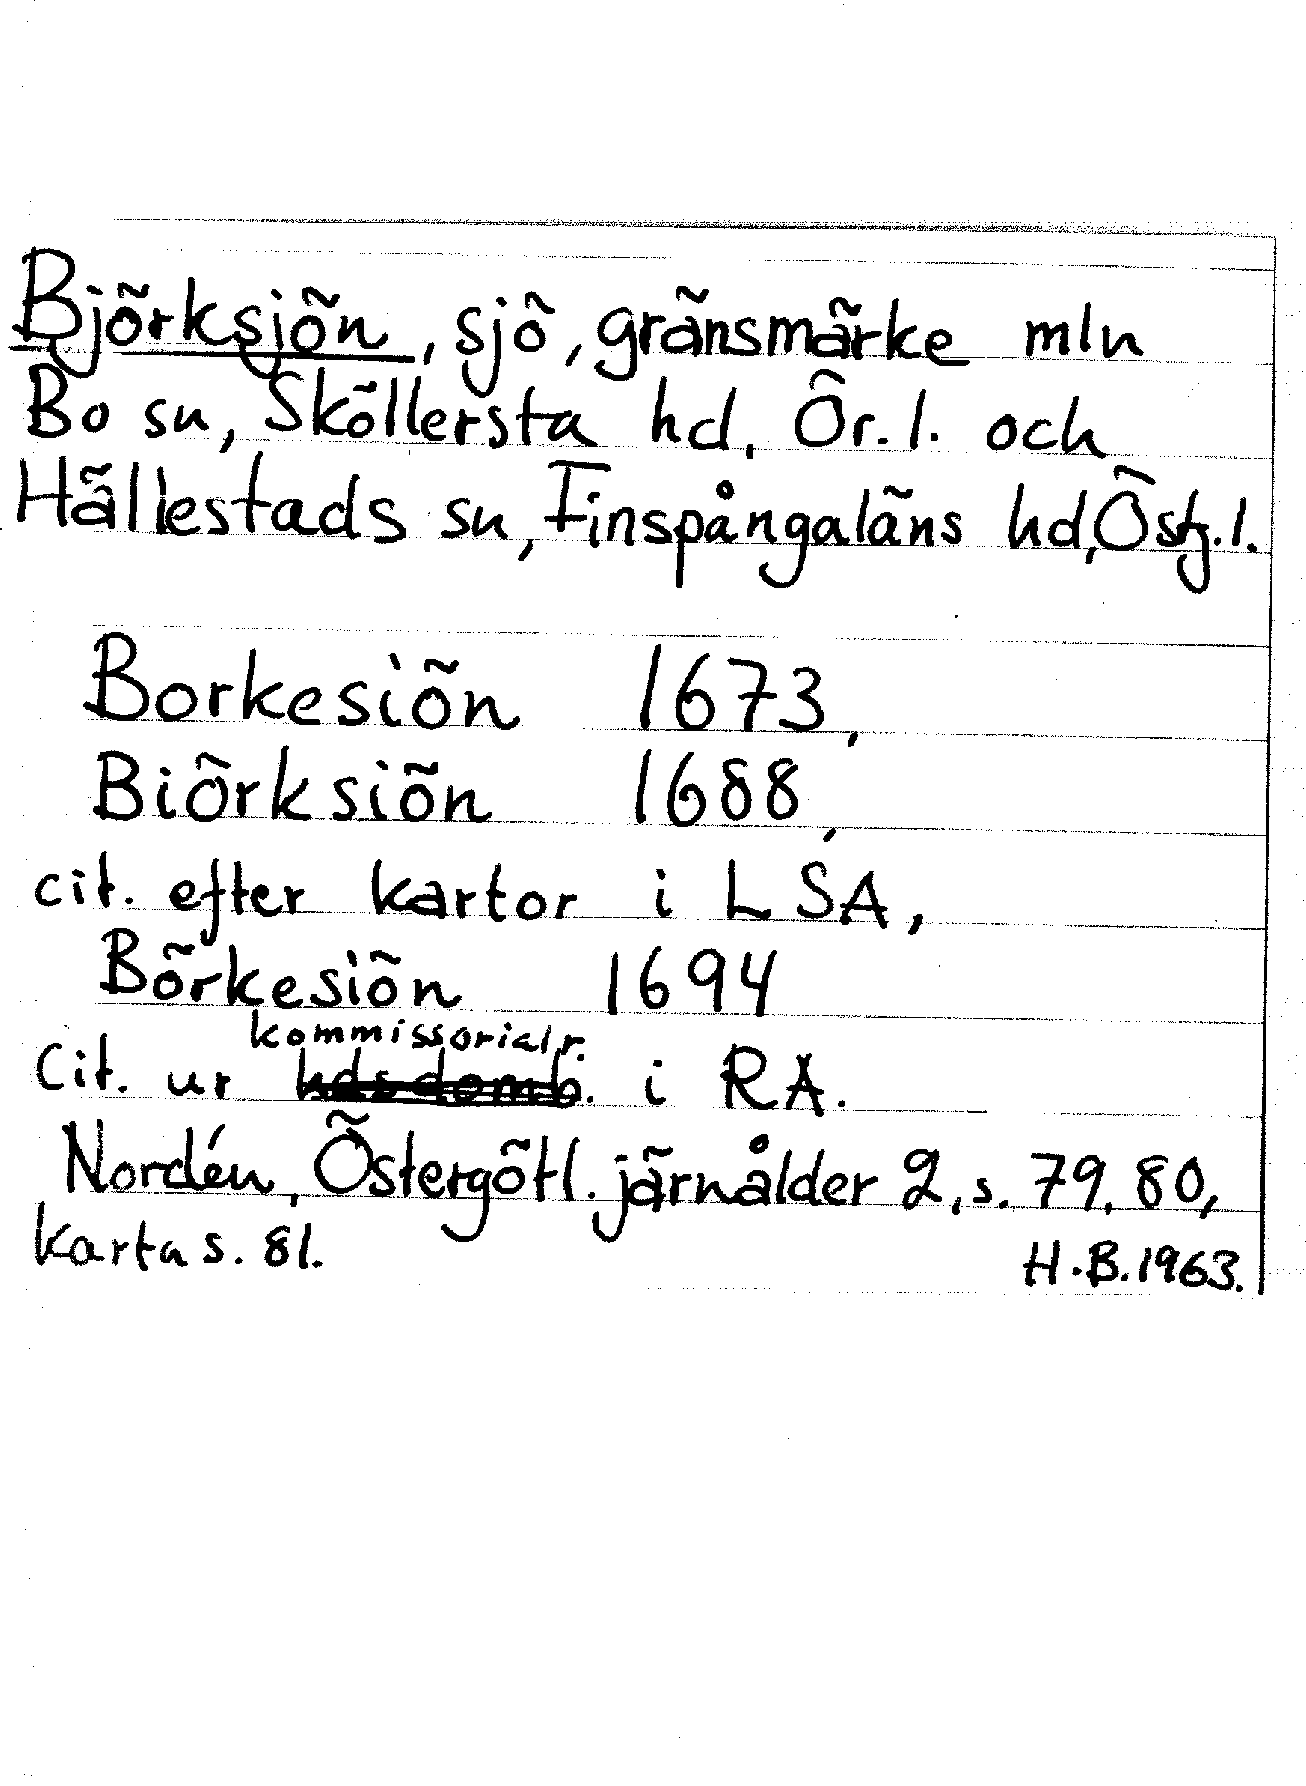 Björksjön, sjö, gränsmärke mln
Bo sn, Sköllersta hd, Ör. l. och
Hällestads sn, Finspångaläns hd, Östg. l.
Borkesiön 1673,
Biörksiön 1688,
cit. efter kartor i LSA,
Börkesiön 1694
kommissorialr.
Cit. ur hdsdomb. i RA.
Nordén, Östergötl. järnålder 2, s. 79, 80,
karta s. 81.
H.B. 1963.